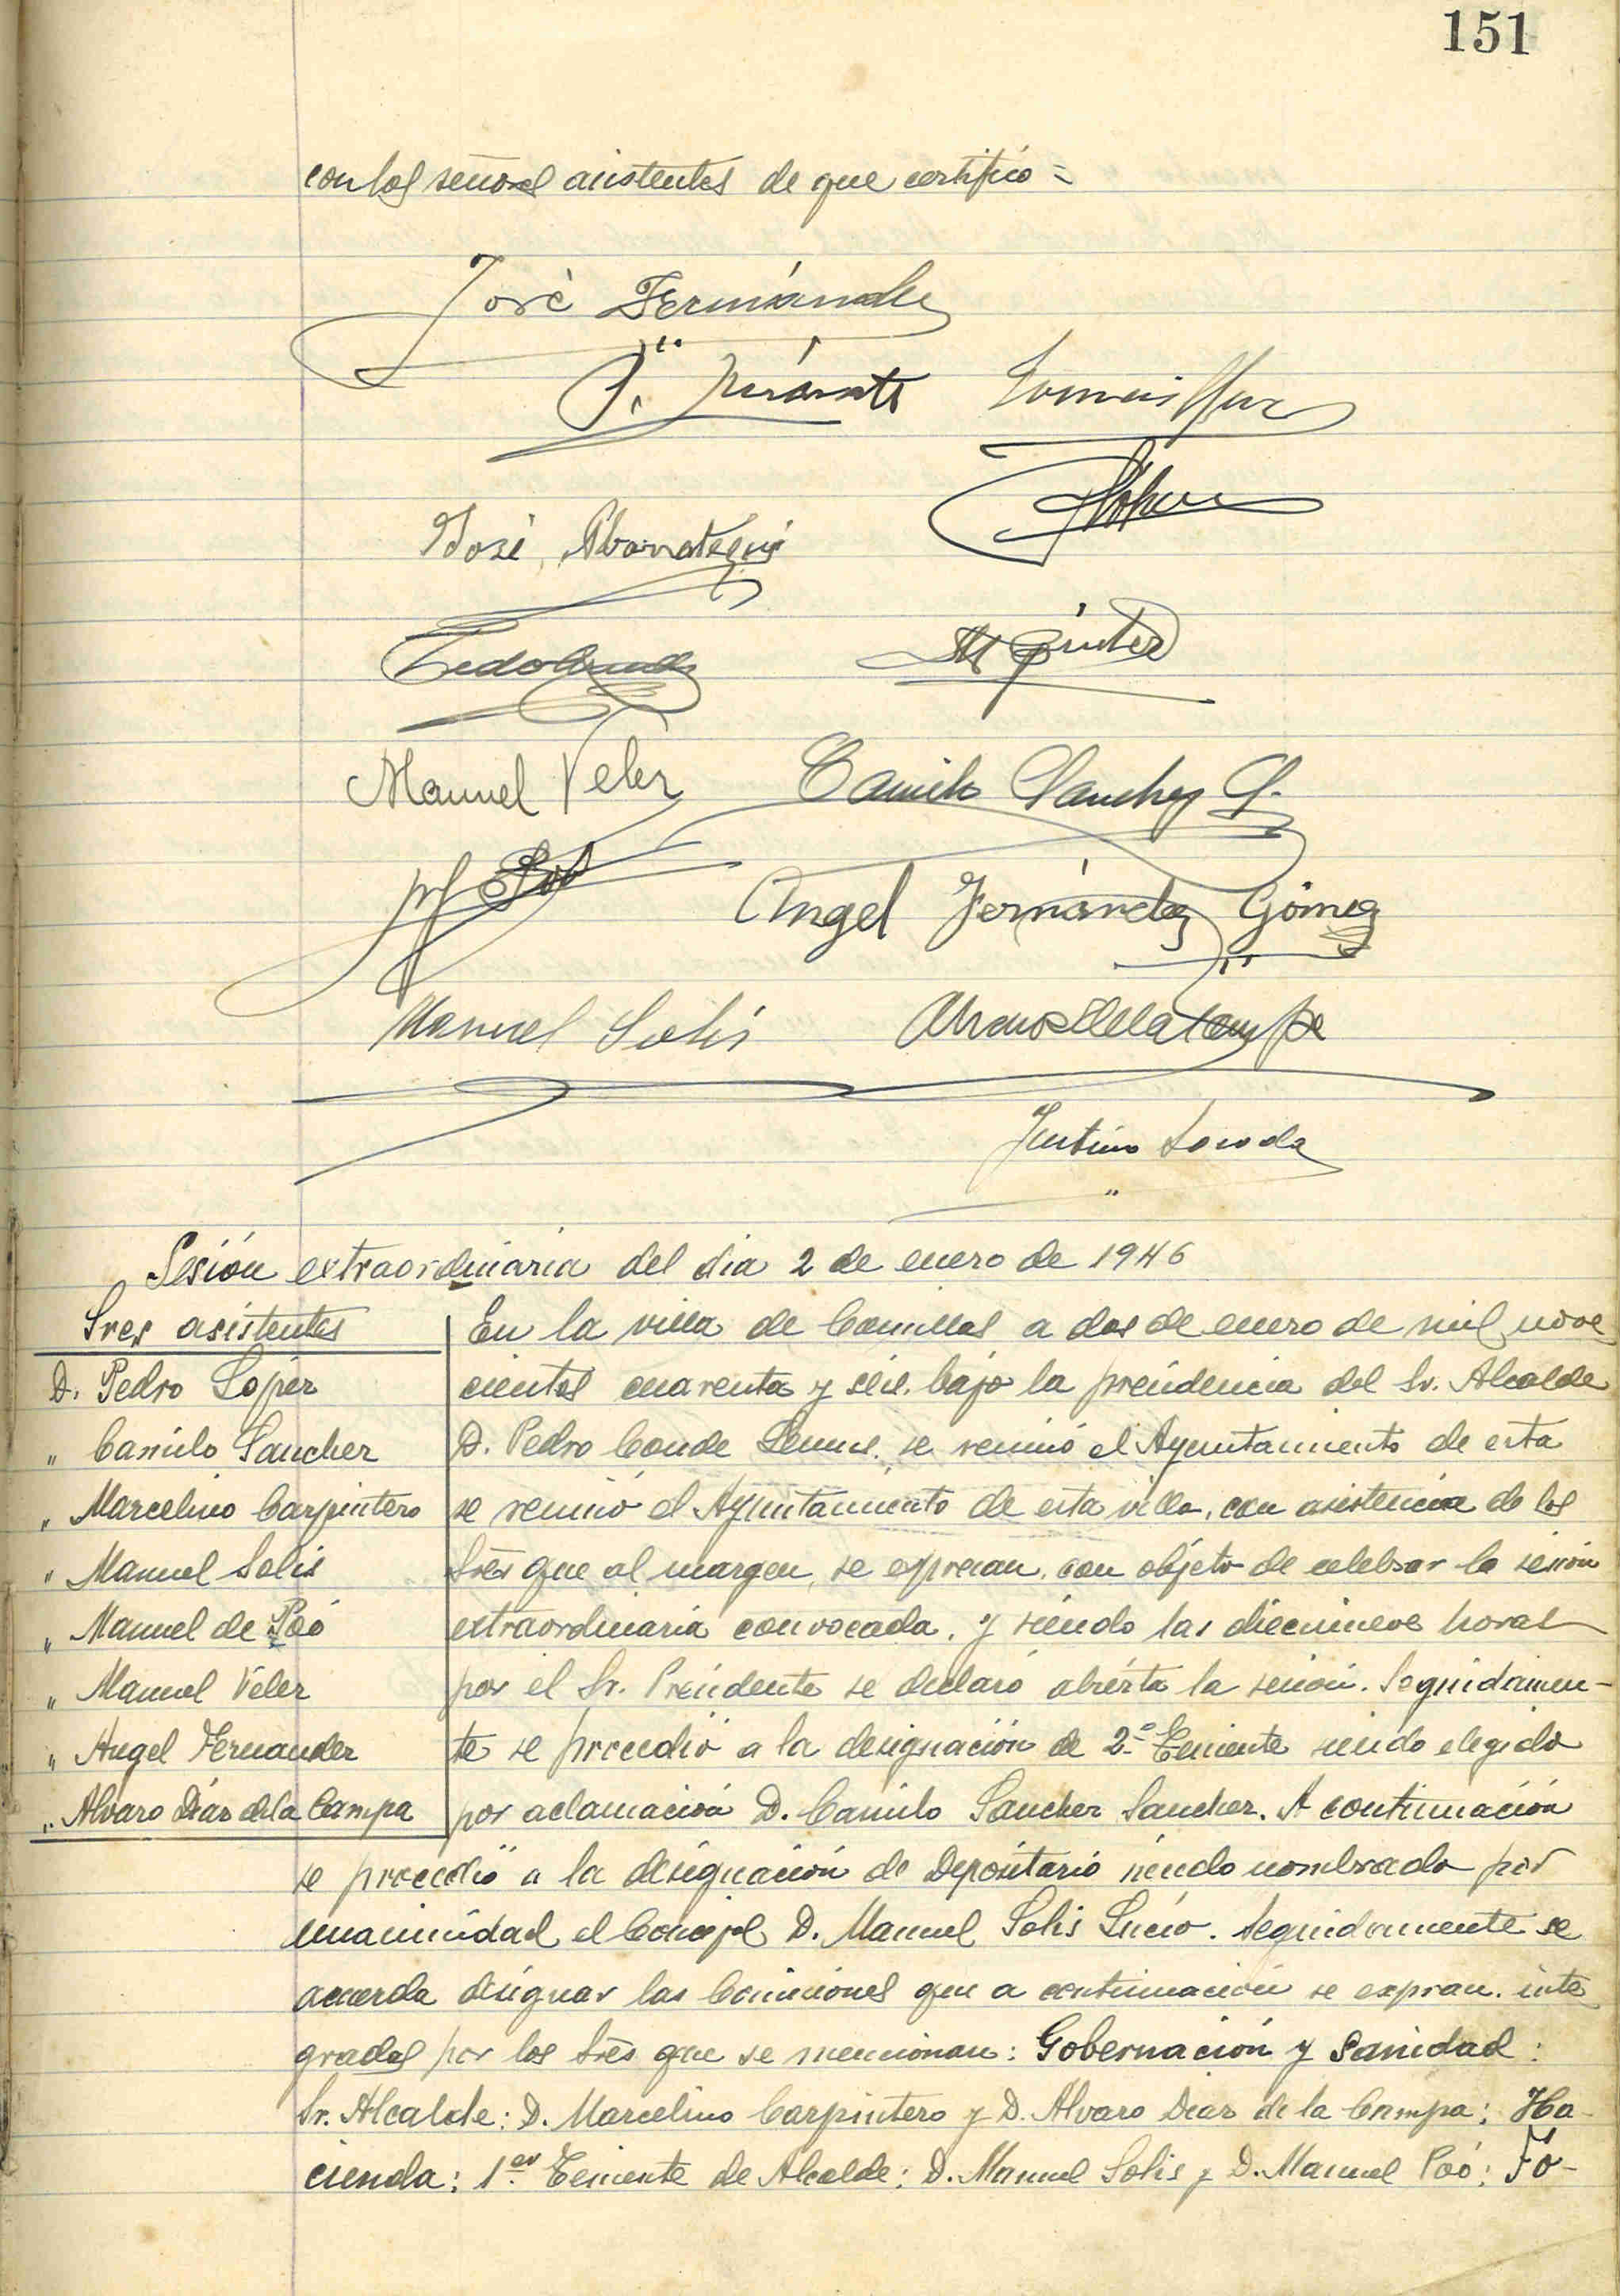 151
con los señores asistentes de que certifico =
José Fernández
José
Manuel Velez Camilo Sanchez
Angel Fernández Gómez
Manuel Solis Alvaro D de la Campa
Justino Losada
Sesión extraordinaria del dia 2 de enero de 1946
Sres asistentes
D. Pedro Lopez
" Camilo Sanchez
" Marcelino Carpintero
" Manuel Solis
" Manuel de Poó
" Manuel Velez
" Angel Fernandez
" Alvaro Diaz de la Campa
En la villa de Comillas a dos de enero de mil nove
cientos cuarenta y seis. bajo la presidencia del Sr. Alcalde
D. Pedro Conde se reunió el Ayuntamiento de esta
se reunió el Ayuntamiento de esta villa, con asistencia de los
Sres que al margen, se expresan, con objeto de celebrar la sesión
extraordinaria convocada. y siendo las diecinueve horas
por el Sr. Presidente se declaró abierta la sesión. Seguidamen-
te se procedió a la designación de 2º Teniente siendo elegido
por aclamación D. Camilo Sanchez Sanchez. A continuación
se procedió a la designación de Depositario siendo nombrado por
unanimidad el Concejal D. Manuel Solis Lucio. Seguidamente se
acuerda designar las Comisiones que a continuación se expran. inte
gradas por los Sres que se mencionan: Gobernación y Sanidad:
Sr. Alcalde: D. Marcelino Carpintero y D. Alvaro Diaz de la Campa: Ha-
cienda: 1er Teniente de Alcalde: D. Manuel Solis y D. Manuel Poó: Fo-